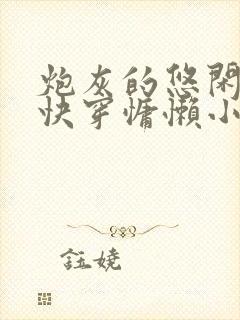 炮灰的悠闲
快穿慵懒小
鈺嬈